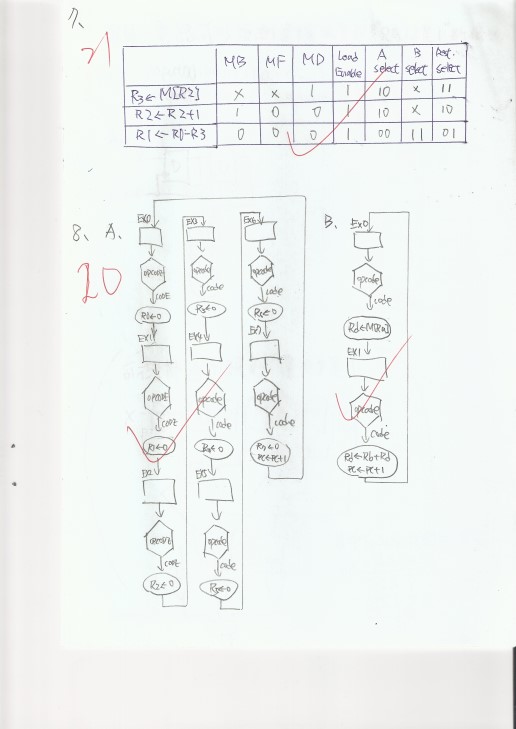 7、
21
MB MF MD Load Enable A select B select Dest. select
R3←M[R2] x x 1 1 10 x 11
R2←R2+1 1 0 0 1 10 x 10
R1←R0-R3 0 0 0 1 00 11 01
8、 A、
20
EX0
opcode
code
R0←0
EX1
opcode
code
R1←0
EX2
opcode
code
R2←0
EX3
opcode
code
R3←0
EX4
opcode
code
R4←0
EX5
opcode
code
R5←0
EX6
opcode
code
R6←0
EX7
opcode
code
R7←0
PC←PC+1
B、
EX0
opcode
code
Rd←M[Ra]
EX1
opcode
code
Rd←Rb+Rd
PC←PC+1